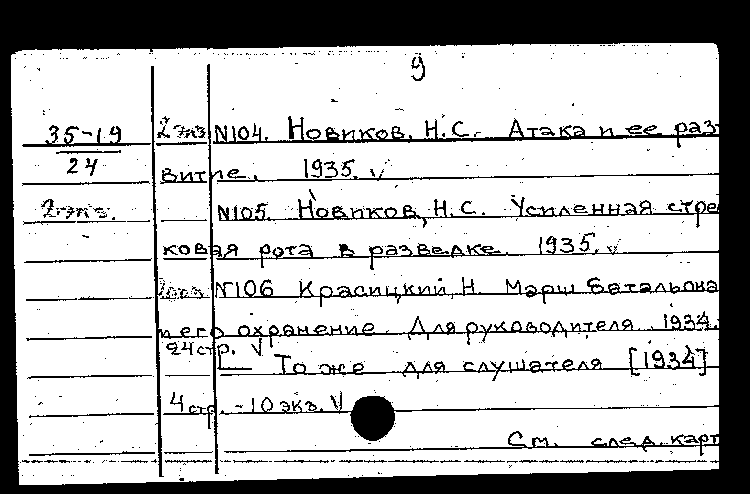 9
35-19 2 экз N104. Новиков, Н.С. Атака и ее раз
24
витие. 1935. V
2 экз. N105. Новиков, Н.С. Усиленная стре
ковая рота в разведке. 1935. V
2 экз N106 Красицкий, Н. Марш батальона
и его охранение. Для руководителя. 1934.
24 стр. V
— То же для слушателя [1934]
4 стр. - 10 экз. V
См. след. карт